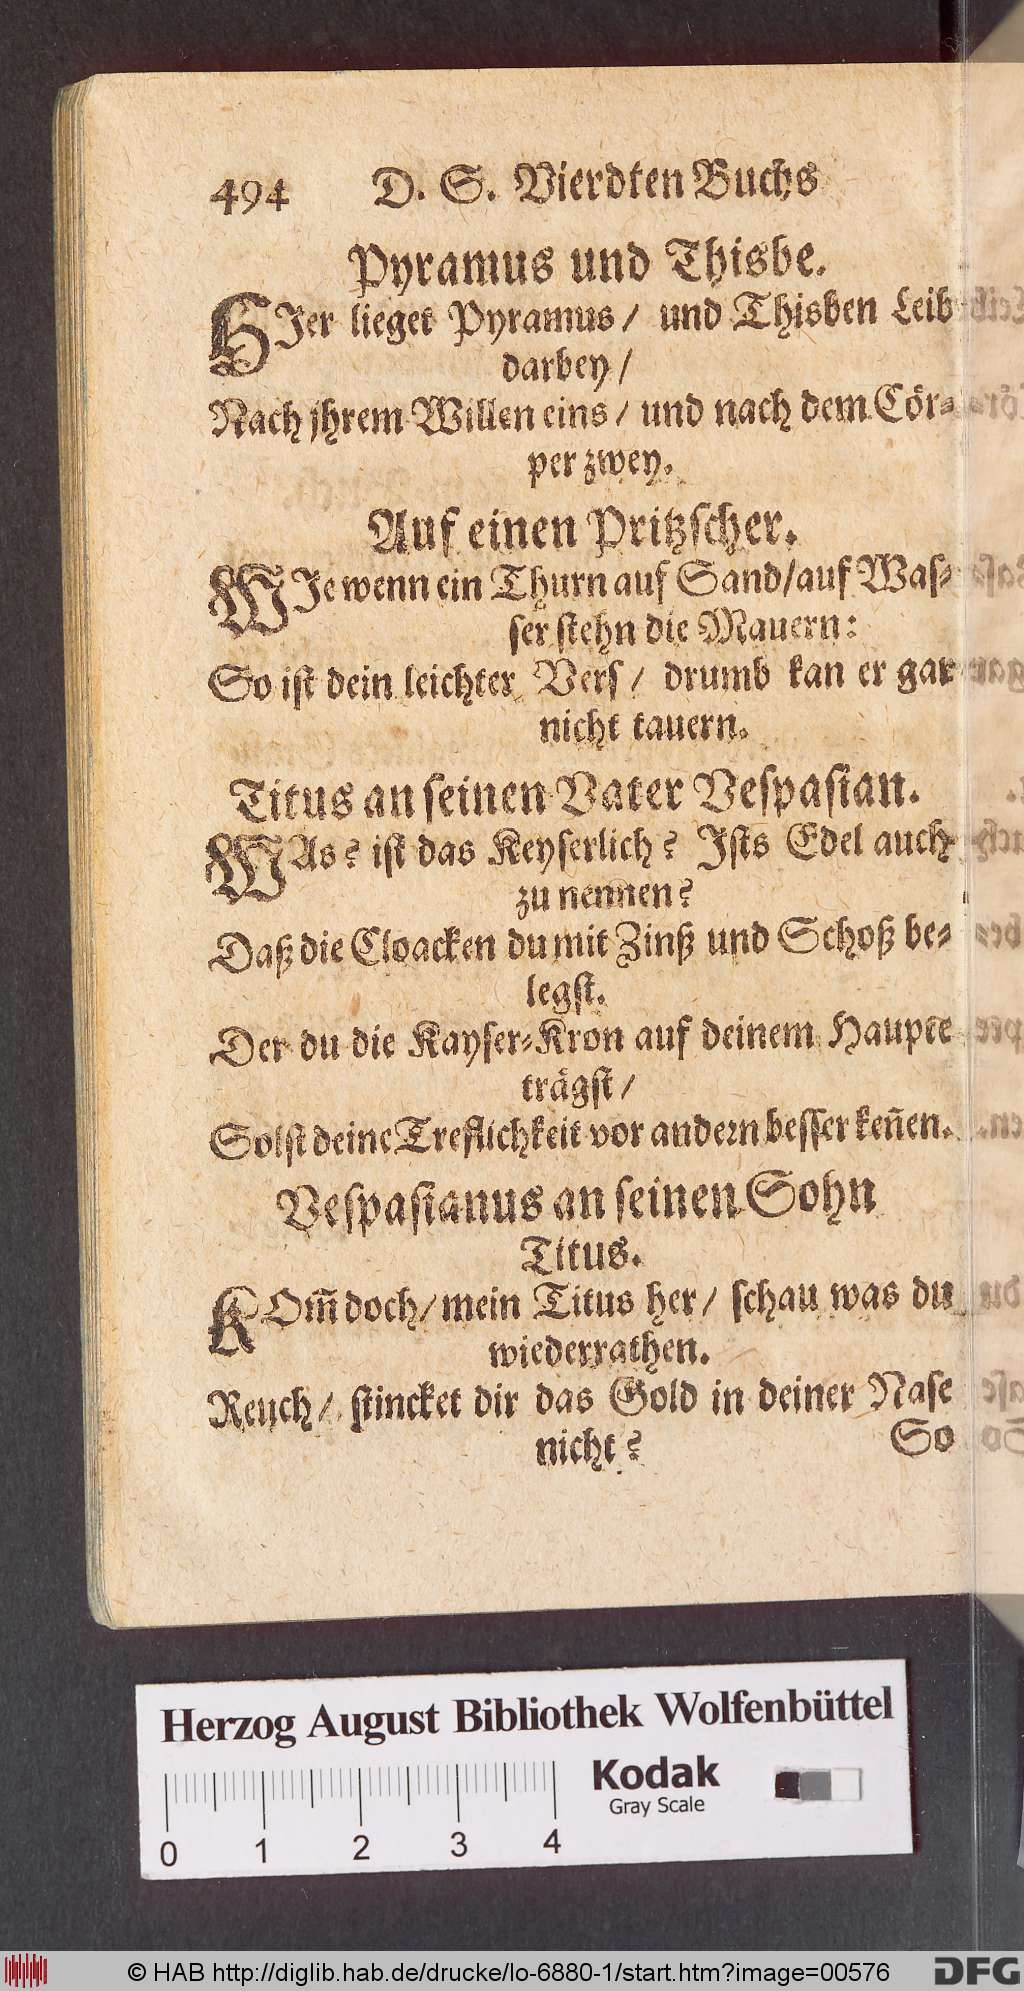 494 D. S. Vierdten Buchs
Pyramus und Thisbe.
HIer lieget Pyramus / und Thisben Leib
darbey /
Nach jhrem Willen eins / und nach dem Cör-
per zwey.
Auf einen Pritzscher.
WJe wenn ein Thurn auf Sand / auf Was-
ser stehn die Mauern:
So ist dein leichter Vers / drumb kan er gar
nicht tauern.
Titus an seinen Vater Vespasian.
WAs? ist das Keyserlich? Jsts Edel auch
zu nennen?
Daß die Cloacken du mit Zinß und Schoß be-
legst.
Der du die Kayser-Kron auf deinem Haupte
trägst /
Solst deine Treflichkeit vor andern besser keñen.
Vespasianus an seinen Sohn
Titus.
KOm̃ doch / mein Titus her / schau was du
wiederrathen.
Reuch / stincket dir das Gold in deiner Nase
nicht?
So
Herzog August Bibliothek Wolfenbüttel
Kodak
Gray Scale
0 1 2 3 4
© HAB http://diglib.hab.de/drucke/lo-6880-1/start.htm?image=00576
DFG